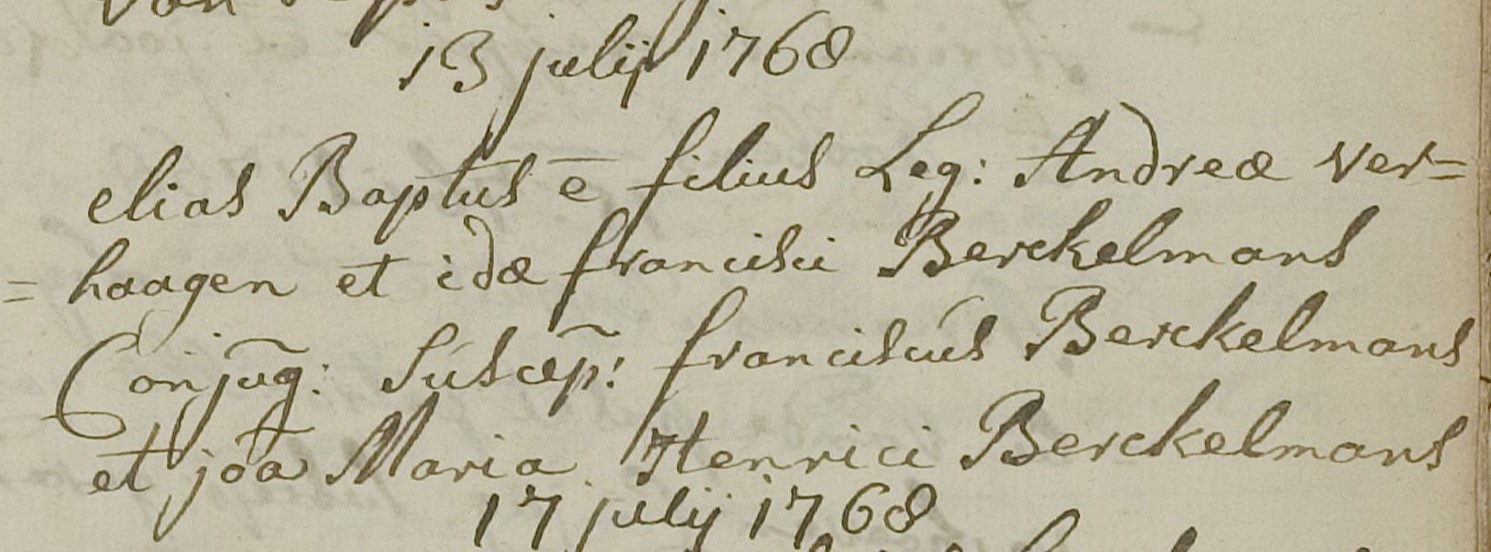 13 julij 1768
elias Baptus ē filius Leg: Andreæ ver=
=haagen et idæ francisci Berckelmans
Conjug: Suscep: franciscus Berckelmans
et joā Maria Henrici Berckelmans
17 julij 1768